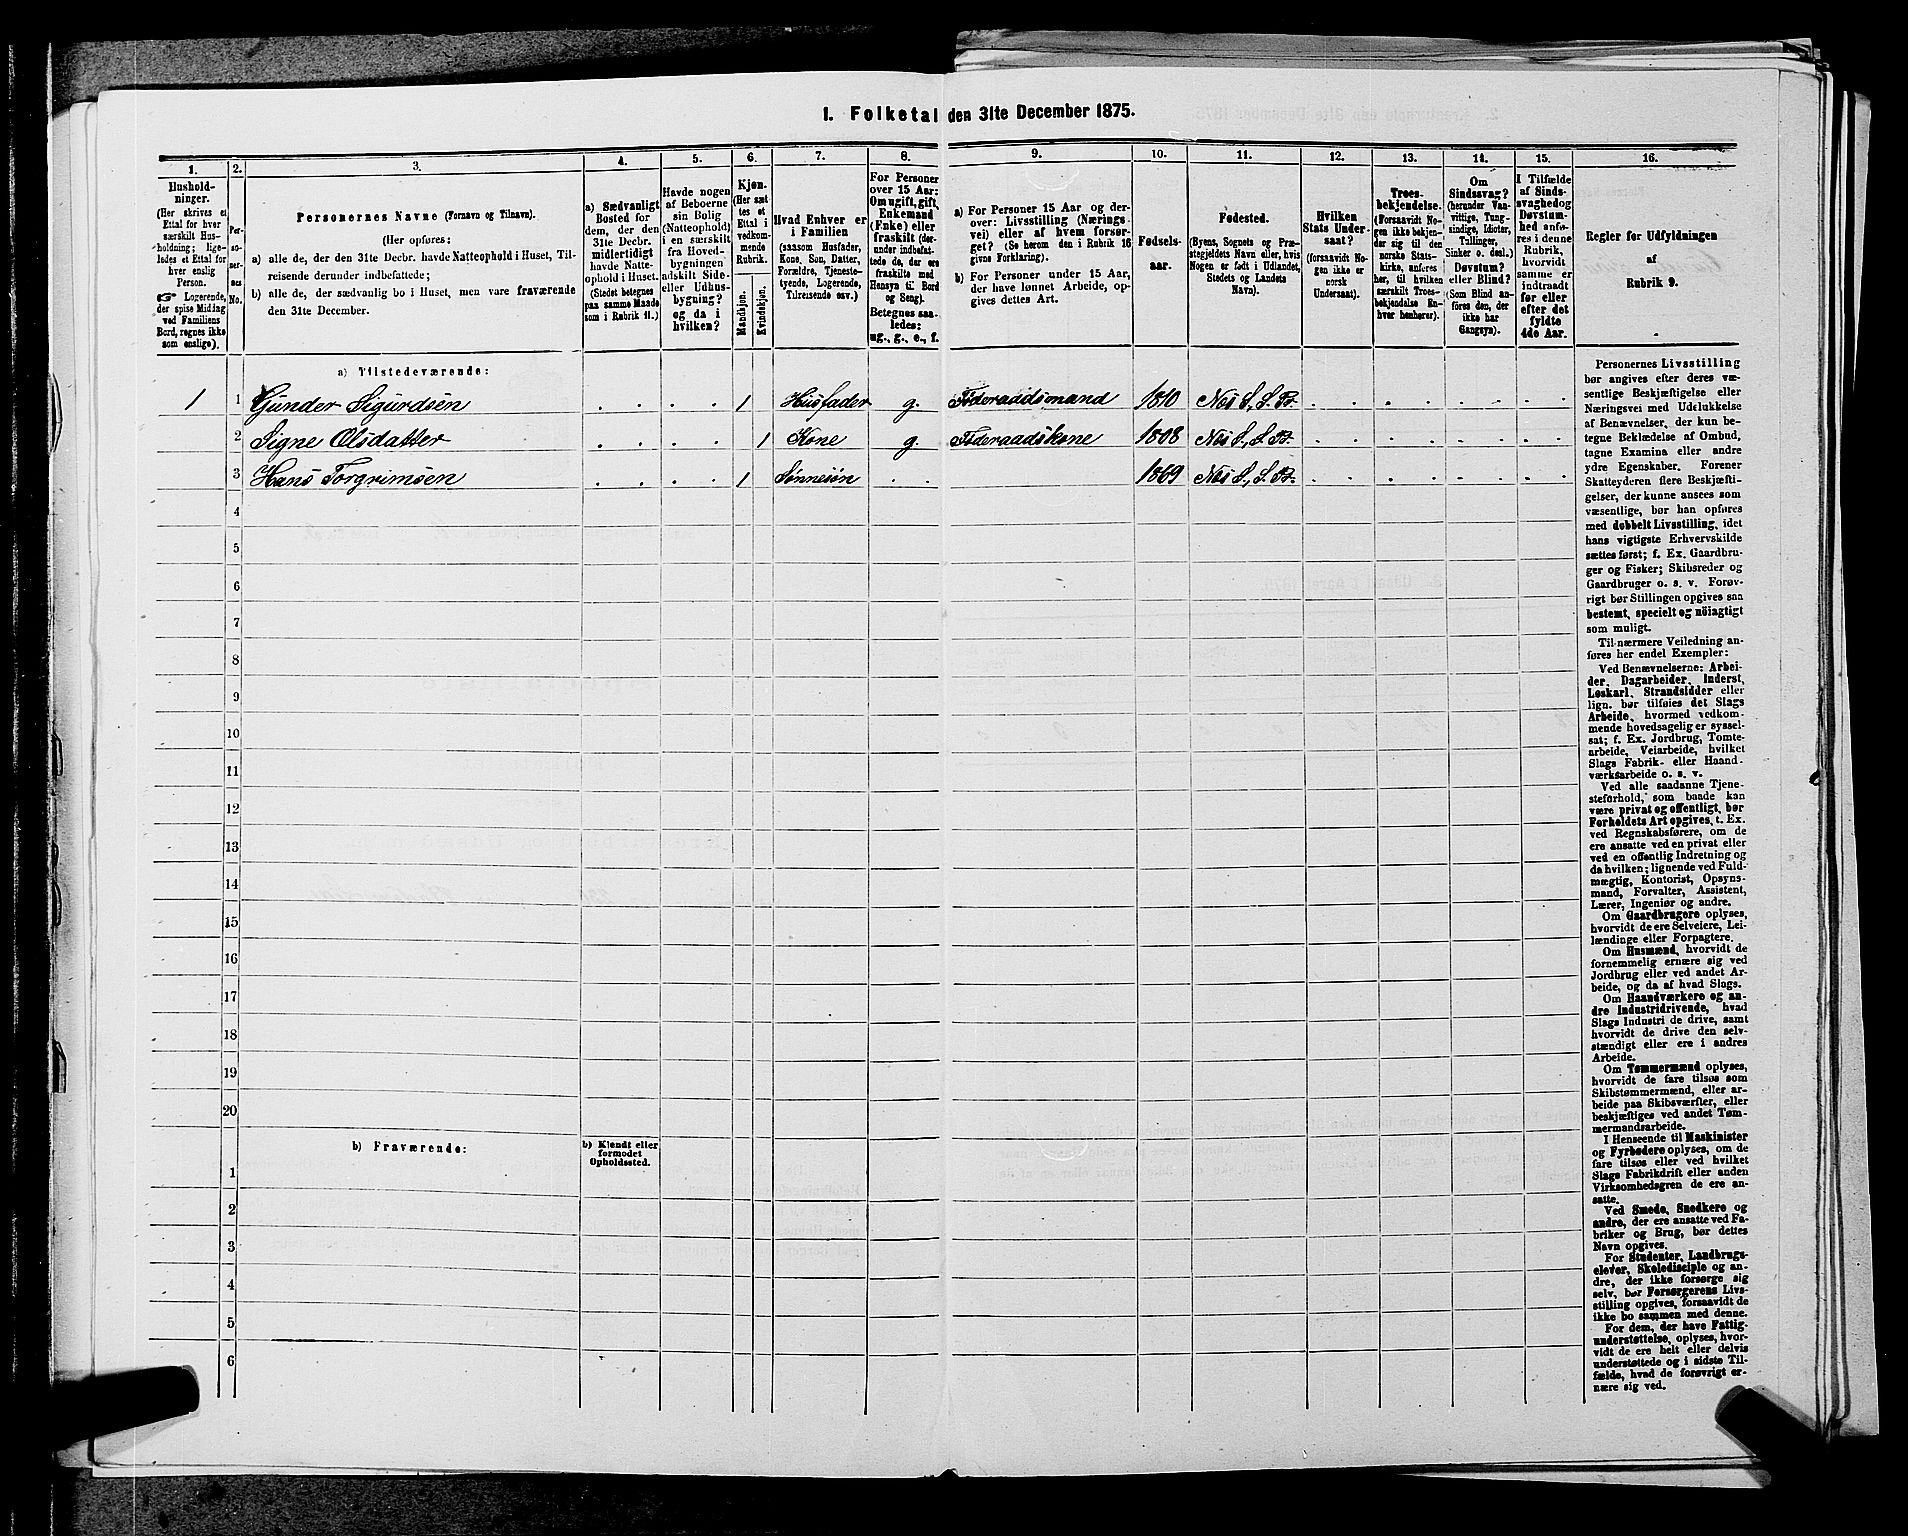 1. Folketal den 31te December 1875.
1. 2. 3. 4. 5. 6. 7. 8. 9. 10. 11. 12. 13. 14. 15. 16.
Hushold-
ninger.
(Her skrives et
Ettal for hver
særskilt Hus-
holdning; lige-
ledes et Ettal for
hver enslig
Person.
Logerende,
der spise Middag
ved Familiens
Bord, regnes ikke
som enslige).
Per-
so-
ner-
nes
No.
Personernes Navne (Fornavn og Tilnavn).
(Her opføres:
a) alle de, der den 31te Decbr. havde Natteophold i Huset, Til-
reisende derunder indbefattede;
b) alle de, der sædvanlig bo i Huset, men vare fraværende
den 31te December.
a) Sædvanligt
Bosted for
dem, der den
31te Decbr.
midlertidigt
havde Natte-
ophold i Huset.
(Stedet betegnes
paa samme Maade
som i Rubrik 11.)
Havde nogen
af Beboerne
sin Bolig
(Natteophold)
i en særskilt
fra Hoved-
bygningen
adskilt Side-
eller Udhus-
bygning?
og da i
hvilken?
Kjøn.
(Her sæt
tes et
Ettal i
vedkom-
mende
Rubrik.
Mandkjøn.
Kvindekjøn.
Hvad Enhver er
i Familien
(saasom Husfader,
Kone, Son, Datter,
Forældre, Tjeneste-
tyende, Logerende,
Tilreisende osv.)
For Personer
over 15 Aar:
Om ugift, gift,
Enkemand
(Enke) eller
fraskilt (der-
under indbefat-
tede de, der ere
fraskilte med
Hensyn til Bord
og Seng).
Betegnes saa-
ledes:
ug., g., e., f.
a) For Personer 15 Aar og der-
over: Livsstilling (Nærings-
vei) eller af hvem forsør-
get? (Se herom den i Rubrik 16
givne Forklaring).
b) For Personer under 15 Aar,
der have lønnet Arbeide, op-
gives dettes Art.
Fødsels-
aar.
Fødested.
(Byens, Sognets og Præ-
stegjeldets Navn eller, hvis
Nogen er født i Udlandet,
Stedets og Landets
Navn).
Hvilken
Stats Under-
saat?
(forsaavidt No-
gen ikke er
norsk
Undersaat).
Troes-
bekjendelse.
(Forsaavidt No-
gen ikke bekjen-
der sig til den
norske Stats-
kirke, anføres
her, til hvilken
særskilt Troes-
bekjendelse En-
hver henhører).
Om
Sindssvag?
(herunder Van-
vittige, Tung-
sindige, Idioter,
Tullinger,
Sinker o. desl.)
Døvstum?
eller Blind?
(Som Blind an-
føres den, der
ikke har
Gangsyn).
I Tilfælde
af Sinds-
svaghed og
Døvstum-
hed anfø-
res i denne
Rubrik,
hvorvidt
samme er
indtraadt
før eller
efter det
fyldte
4de Aar.
Regler for Udfyldningen
af
Rubrik 9.
a) Tilstedeværende:
1 1 Gunder Sigurdsen 1 Husfader g. Føderaadsmand 1810 Nes S., S. Br.
2 Signe Olsdatter 1 Kone g. Føderaadskone 1808 Nes S., S. Br.
3 Hans Torgrimsen 1 Sønnesøn 1869 Nes S., S. Br.
4
5
6
7
8
9
10
11
12
13
14
15
16
17
18
19
20
b) Fraværende: b) Kjendt eller
formodet
Opholdssted.
1
2
3
4
5
6
Personernes Livsstilling
bør angives efter deres væ-
sentlige Beskjæftigelse eller
Næringsvei med Udelukkelse
af Benævnelser, der kun be-
tegne Beklædelse af Ombud,
tagne Examina eller andre
ydre Egenskaber. Forener
Skatteyderen flere Beskjæfti-
gelser, der kunne ansees som
væsentlige, bør han opføres
med dobbelt Livsstilling, idet
hans vigtigste Erhvervskilde
sættes først; f. Ex. Gaardbru-
ger og Fisker; Skibsreder og
Gaardbruger o. s. v. Forøv-
rigt bør Stillingen opgives saa
bestemt, specielt og nöiagtigt
som muligt.
Til nærmere Veiledning an-
føres her endel Exempler:
Ved Benævnelserne: Arbei-
der, Dagarbeider, Inderst,
Løskarl, Strandsidder eller
lign. bør tilføies det Slags
Arbeide, hvormed vedkom-
mende hovedsagelig er syssel-
sat; f. Ex. Jordbrug, Tomte-
arbeide, Veiarbeide, hvilket
Slags Fabrik- eller Haand-
værksarbeide o. s. v.
Ved alle saadanne Tjene-
steforhold, som baade kan
være privat og offentligt, bør
Forholdets Art opgives, t. Ex.
ved Regnskabsførere, om de
ere ansatte ved en privat eller
ved en offentlig Indretning og
da hvilken; lignende ved Fuld-
mægtig, Kontorist, Opsyns-
mand, Forvalter, Assistent,
Lærer, Ingeniør og andre.
Om Gaardbrugere oplyses,
hvorvidt de ere Selveiere, Lei-
lændinge eller Forpagtere.
Om Husmænd, hvorvidt de
fornemmelig ernære sig ved
Jordbrug eller ved andet Ar-
beide, og da af hvad Slags.
Om Haandværkere og an-
dre Industridrivende, hvad
Slags Industri de drive, samt
hvorvidt de drive den selv-
stændigt eller ere i andres
Arbeide.
Om Tømmermænd oplyses,
hvorvidt de fare tilsøs som
Skibstømmermænd, eller ar-
beide paa Skibsværfter, eller
beskjæftiges ved andet Tøm-
mermandsarbeide.
I Henseende til Maskinister
og Fyrbødere oplyses, om de
fare tilsøs eller ved hvilket
Slags Fabrikdrift eller anden
Virksomhedsgren de ere an-
satte.
Ved Smede, Snedkere og
andre, der ere ansatte ved Fa-
briker og Brug, bør dettes
Navn opgives.
For Studenter, Landbrugs-
elever, Skoledisciple og an-
dre, der ikke forsørge sig
selv, bør Forsørgerens Livs-
stilling opgives, forsaavidt de
ikke bo sammen med denne.
For dem, der have Fattig-
understøttelse, oplyses, hvor-
vidt de ere helt eller delvis
understøttede og i sidste Til-
fælde, hvad de forøvrigt er-
nære sig ved.